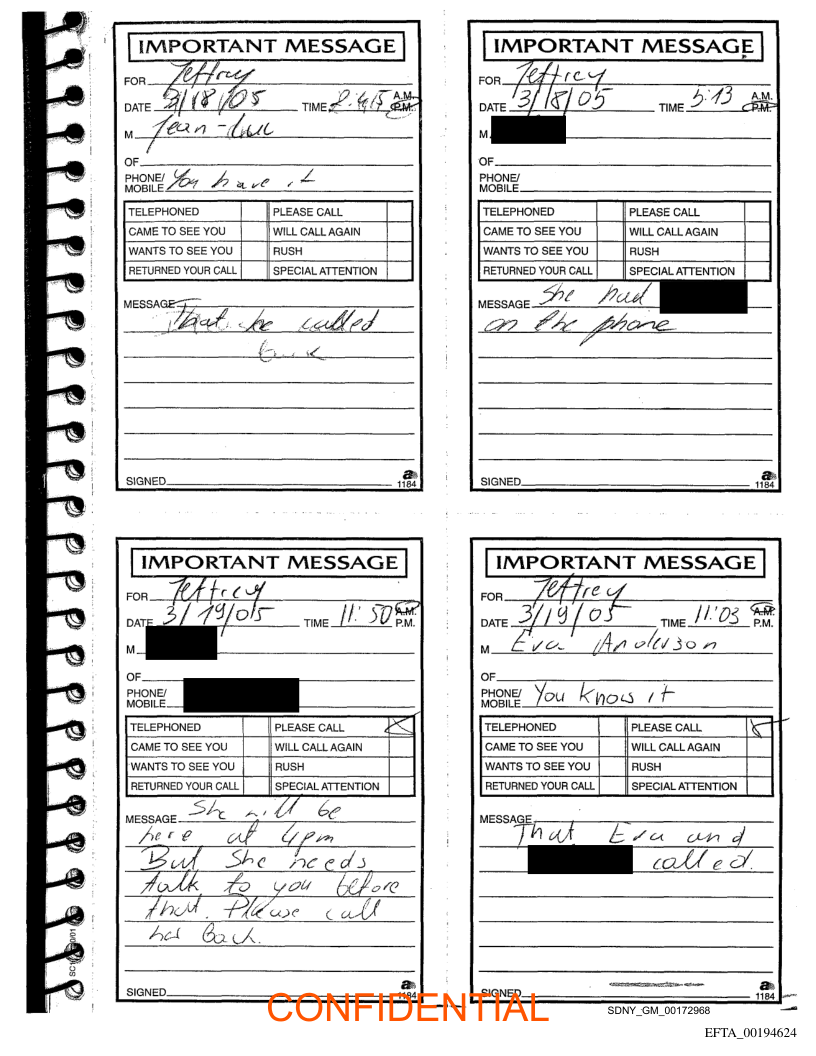 IMPORTANT MESSAGE
FOR Jeffrey
DATE 3/18/05 TIME 2:45 A.M. P.M.
M Jean-Luc
OF
PHONE/ MOBILE You have it
TELEPHONED PLEASE CALL
CAME TO SEE YOU WILL CALL AGAIN
WANTS TO SEE YOU RUSH
RETURNED YOUR CALL SPECIAL ATTENTION
MESSAGE
That he called
back
SIGNED
1184
IMPORTANT MESSAGE
FOR Jeffrey
DATE 3/18/05 TIME 5:13 A.M. P.M.
M
OF
PHONE/ MOBILE
TELEPHONED PLEASE CALL
CAME TO SEE YOU WILL CALL AGAIN
WANTS TO SEE YOU RUSH
RETURNED YOUR CALL SPECIAL ATTENTION
MESSAGE She had
on the phone
SIGNED
1184
IMPORTANT MESSAGE
FOR Jeffrey
DATE 3/19/05 TIME 11:50 A.M. P.M.
M
OF
PHONE/ MOBILE
TELEPHONED PLEASE CALL
CAME TO SEE YOU WILL CALL AGAIN
WANTS TO SEE YOU RUSH
RETURNED YOUR CALL SPECIAL ATTENTION
MESSAGE She will be
here at 4pm
But she needs
talk to you before
that. Please call
her Back.
SIGNED
1184
IMPORTANT MESSAGE
FOR Jeffrey
DATE 3/19/05 TIME 11:03 A.M. P.M.
M Eva Anderson
OF
PHONE/ MOBILE You know it
TELEPHONED PLEASE CALL
CAME TO SEE YOU WILL CALL AGAIN
WANTS TO SEE YOU RUSH
RETURNED YOUR CALL SPECIAL ATTENTION
MESSAGE
That Eva and
called.
SIGNED
1184
CONFIDENTIAL
SDNY_GM_00172968
EFTA_00194624